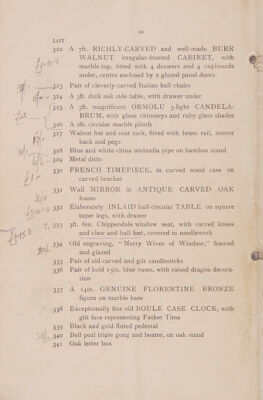 20
LOT
322 A 7ft. RICHLY-CARVED and well-made BURR
WALNUT irregular-fronted CABINET, with
marble top, fitted with 4 drawers and 4 cupboards
under, centre enclosed by 2 glazed panel doors
323 Pair of cleverly-carved Italian hall chairs
324 A 3ft. dark oak side table, with drawer under
325 A 5ft. magnificent ORMOLU 3-light CANDELA-
BRUM, with glass chimneys and ruby glass shades
326 A 2ft. circular marble plinth
327 Walnut hat and coat rack, fitted with brass rail, mirror
back and pegs
328 Blue and white china umbrella pipe on bamboo stand
329 Metal ditto
330 FRENCH TIMEPIECE, in carved wood case on
carved bracket
331 Wall MIRROR in ANTIQUE CARVED OAK
frame
332 Elaborately INLAID half-circular TABLE on square
taper legs, with drawer
333 3ft. 6in. Chippendale window seat, with carved knees
and claw and ball feet, covered in needlework
334 Old engraving, "Merry Wives of Windsor," framed
and glazed
335 Pair of old carved and gilt candlesticks
336 Pair of bold 15in. blue vases, with raised dragon decora-
tion
337 A 14in. GENUINE FLORENTINE BRONZE
figure on marble base
338 Exceptionally fine old BOULE CASE CLOCK, with
gilt face representing Father Time
339 Black and gold fluted pedestal
340 Bell peal triple gong and beater, on oak stand
341 Oak letter box